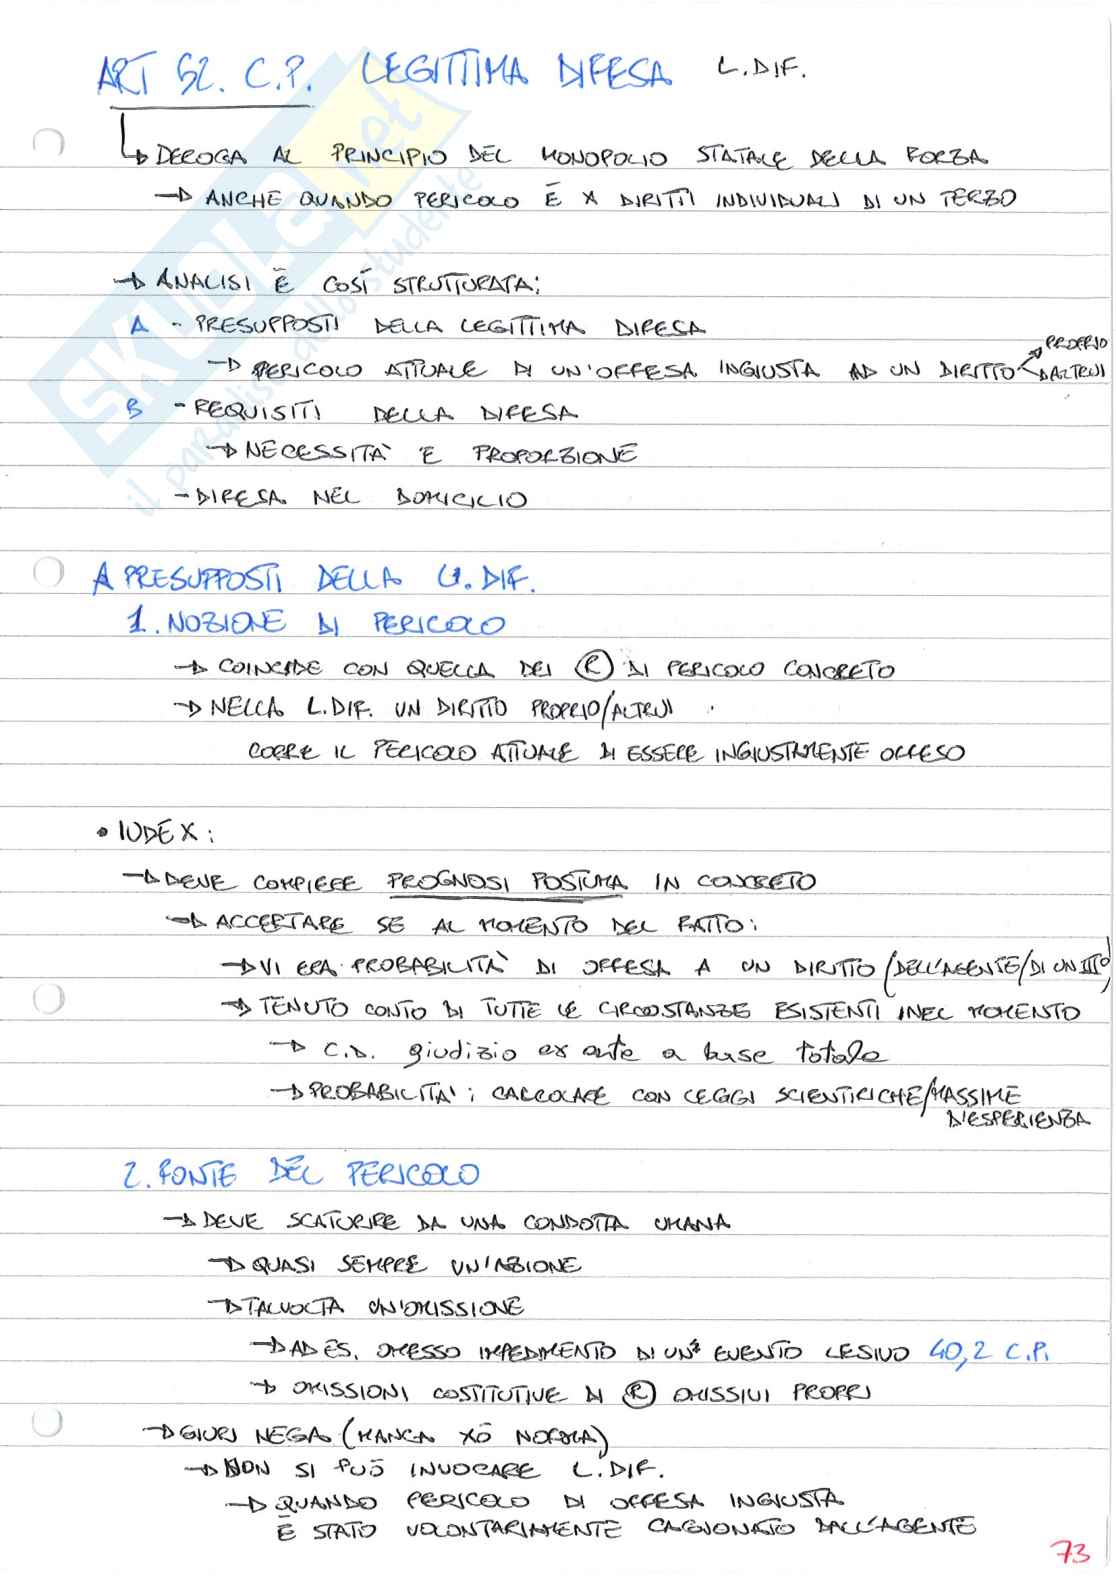 ART 52. C.P. LEGITTIMA DIFESA L.DIF.
↳ DEROGA AL PRINCIPIO DEL MONOPOLIO STATALE DELLA FORZA
→ ANCHE QUANDO PERICOLO È X DIRITTI INDIVIDUALI DI UN TERZO
→ ANALISI È COSÍ STRUTTURATA:
A - PRESUPPOSTI DELLA LEGITTIMA DIFESA
→ PERICOLO ATTUALE DI UN'OFFESA INGIUSTA AD UN DIRITTO PROPRIO
ALTRUI
B - REQUISITI DELLA DIFESA
→ NECESSITÀ E PROPORZIONE
- DIFESA NEL DOMICILIO
A PRESUPPOSTI DELLA L.DIF.
1. NOZIONE DI PERICOLO
→ COINCIDE CON QUELLA DEI Ⓡ DI PERICOLO CONCRETO
→ NELLA L.DIF. UN DIRITTO PROPRIO/ALTRUI
CORRE IL PERICOLO ATTUALE DI ESSERE INGIUSTAMENTE OFFESO
• IUDEX:
→ DEVE COMPIERE PROGNOSI POSTUMA IN CONCRETO
→ ACCERTARE SE AL MOMENTO DEL FATTO:
→ VI ERA PROBABILITÀ DI OFFESA A UN DIRITTO (DELL'AGENTE/DI UN IIIº)
→ TENUTO CONTO DI TUTTE LE CIRCOSTANZE ESISTENTI INEL MOMENTO
→ C.D. giudizio ex ante a base totale
→ PROBABILITÀ: CALCOLARE CON LEGGI SCIENTIFICHE/MASSIME
D'ESPERIENZA
2. FONTE DEL PERICOLO
→ DEVE SCATURIRE DA UNA CONDOTTA UMANA
→ QUASI SEMPRE UN'AZIONE
→ TALVOLTA UN'OMISSIONE
→ AD ES. OMESSO IMPEDIMENTO DI UN EVENTO LESIVO 40,2 C.P.
→ OMISSIONI COSTITUTIVE DI Ⓡ OMISSIVI PROPRI
→ GIURI NEGA (MANCA XÒ NORMA)
→ NON SI PUÒ INVOCARE L.DIF.
→ QUANDO PERICOLO DI OFFESA INGIUSTA
È STATO VOLONTARIAMENTE CAGIONATO DALL'AGENTE
73
SKUOLA.net
il paradiso dello studente